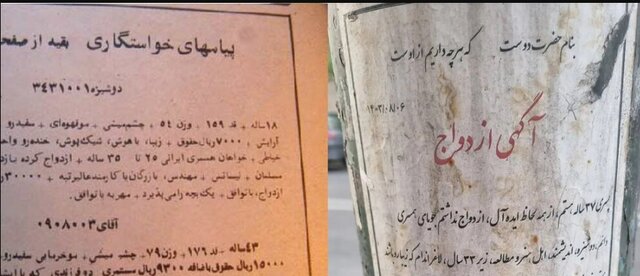 پیامهای خواستگاری بقیه از صفحه
دوشیزه ۳۴۳۱۰۰۱
۱۸ ساله + قد ۱۵۹ + وزن ۵۴ + چشم میشی + موقهوه‌ای + سفیدرو
آرایش + ۷۰۰۰ ریال حقوق + زیبا، باهوش، شیک‌پوش، خنده‌رو واحد
خیاطی + خواهان همسری ایرانی ۲۵ تا ۳۵ ساله + ازدواج کرده با
مسلمان + لیسانس + مهندس، یا بازرگان یا کارمند عالیرتبه + ۳۰۰۰۰
ازدواج، با توافق + یک بچه را می‌پذیرد + مهریه با توافق.
آقای ۰۹۰۸۰۰۳
۴۳ ساله + قد ۱۷۶ + وزن ۷۹ + چشم میشی + موخرمایی + سفیدرو
۱۵۰۰۰ ریال حقوق باضافه ۹۳۰۰ ریال مستمری
بنام حضرت دوست که هرچه داریم از اوست
۱۴۰۳/۰۸/۰۶
آگهی ازدواج
پسری ۳۷ ساله هستم، از همه لحاظ ایده‌آل، ازدواج نداشتم جویای همسری
دائم، دوشیزه، اندیشمند، اهل هنر و مطالعه، زیر ۳۳ سال، لاغر اندام که زیبا رو باشد